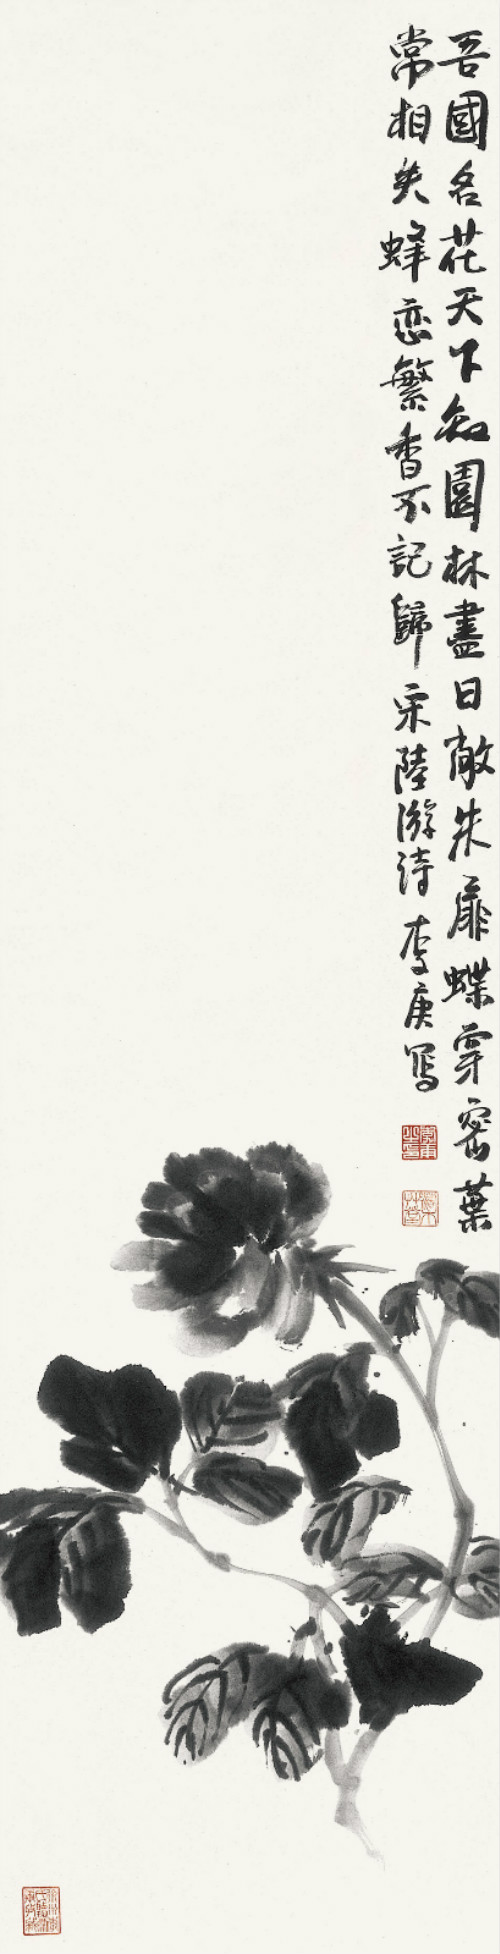 吾國名花天下知園林盡日敞朱扉蝶穿密葉
常相失蜂恋繁香不記歸 宋陸游诗 李庚写